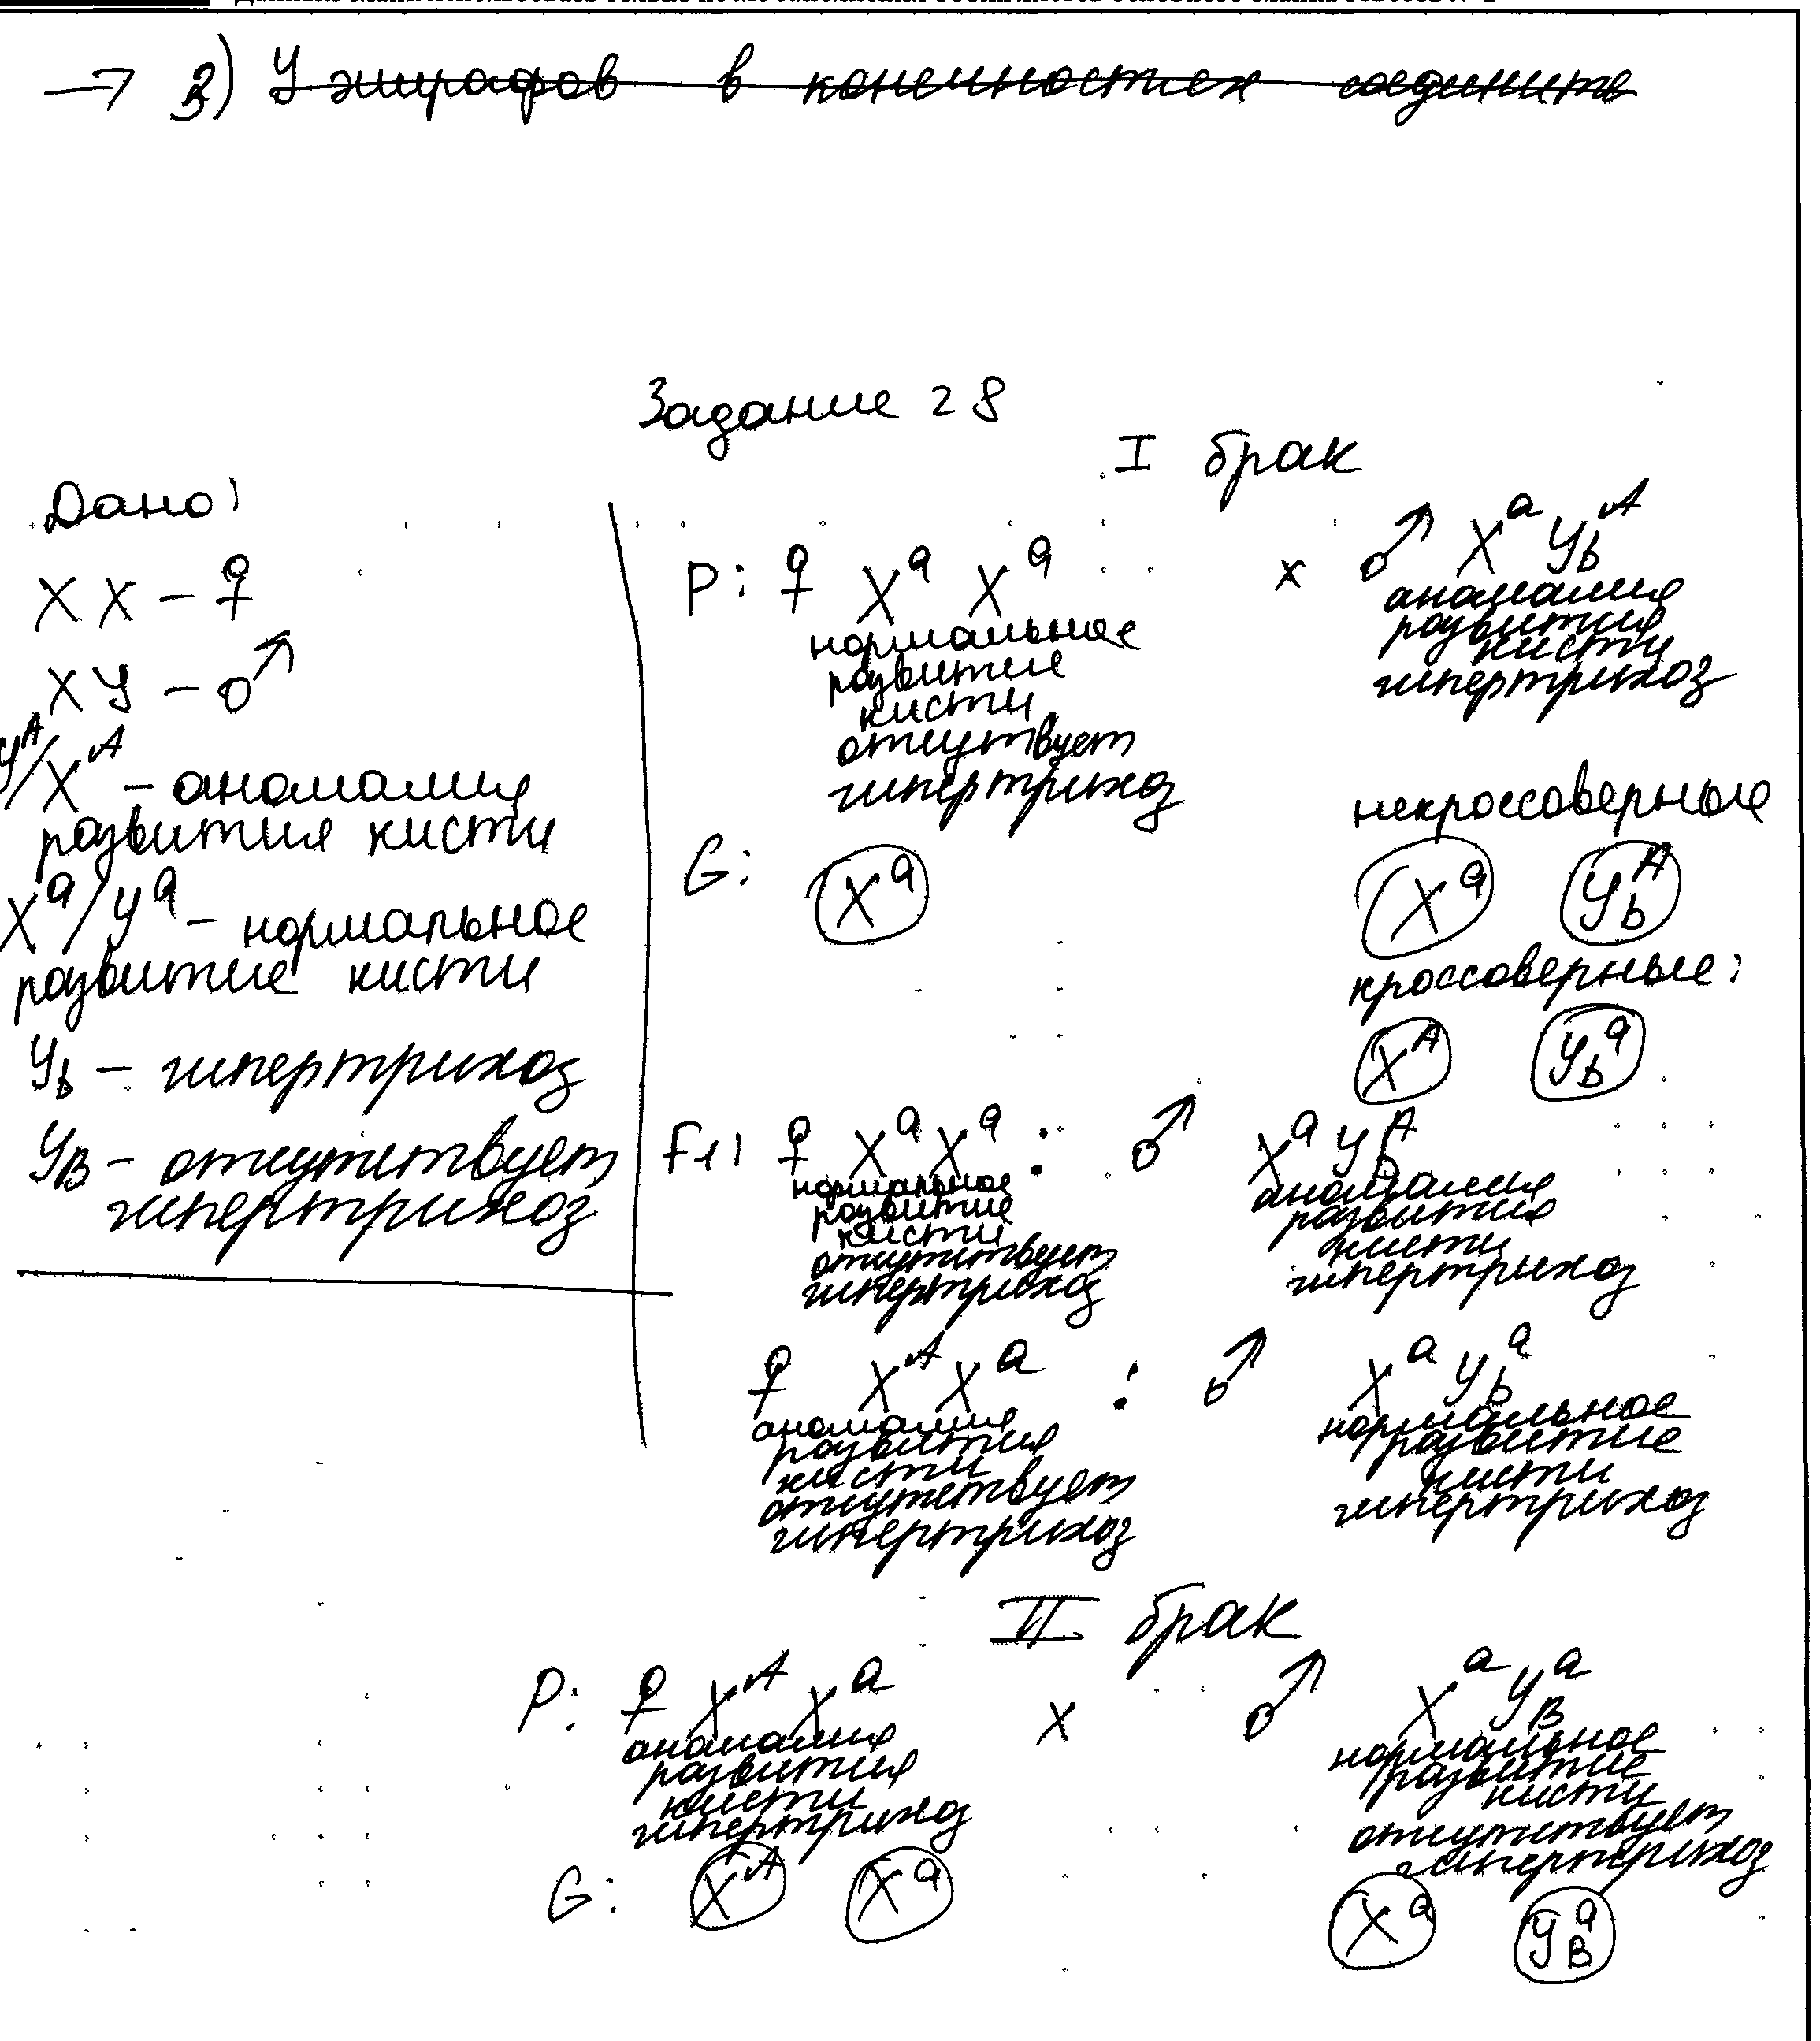 → 3) У жирафов в конечностях соедините
Задание 28
I брак
Дано:
XX - ♀
XY - ♂
Yᴬ/Xᴬ - аномалия
развития кисти
Xᵃ/Yᵃ - нормальное
развитие кисти
Yb - гипертрихоз
YB - отсутствует
гипертрихоз
P: ♀ Xᵃ Xᵃ x ♂ Xᵃ Ybᴬ
нормальное
развитие
кисти
отсутвует
гипертрихоз
аномалия
развития
кисти
гипертрихоз
некроссоверные
G: Xᵃ Xᵃ Ybᴬ
кроссоверные:
Xᴬ Ybᵃ
F1: ♀ XᵃXᵃ : ♂ XᵃYbᴬ
нормальное
развитие
кисти
отсутствует
гипертрихоз
аномалия
развития
кисти
гипертрихоз
♀ XᴬXᵃ : ♂ XᵃYbᵃ
аномалия
развития
кисти
отсутствует
гипертрихоз
нормальное
развитие
кисти
гипертрихоз
II брак
P: ♀ Xᴬ Xᵃ x ♂ Xᵃ YBᵃ
аномалия
развития
кисти
гипертрихоз
нормальное
развитие
кисти
отсутствует
гипертрихоз
G: Xᴬ Xᵃ Xᵃ YBᵃ